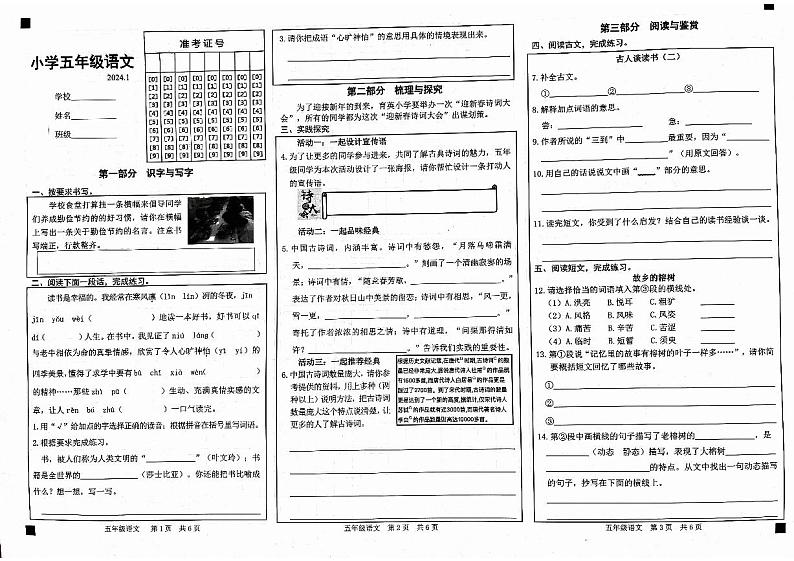 小学五年级语文
2024.1
学校
姓名
班级
准考证号
[0] [0] [0] [0] [0] [0] [0] [0]
[1] [1] [1] [1] [1] [1] [1] [1]
[2] [2] [2] [2] [2] [2] [2] [2]
[3] [3] [3] [3] [3] [3] [3] [3]
[4] [4] [4] [4] [4] [4] [4] [4]
[5] [5] [5] [5] [5] [5] [5] [5]
[6] [6] [6] [6] [6] [6] [6] [6]
[7] [7] [7] [7] [7] [7] [7] [7]
[8] [8] [8] [8] [8] [8] [8] [8]
[9] [9] [9] [9] [9] [9] [9] [9]
第一部分 识字与写字
一、按要求书写。
学校食堂打算找一条横幅来倡导同学
们养成勤俭节约的的好习惯,请你在横幅
上写出一条关于勤俭节约的名言。注意书
写端正,行款整齐。
二、阅读下面一段话,完成练习。
读书是幸福的。我经常在寒风凛(lǐn lǐng)冽的冬夜,jīn
jīn yǒu wèi( )地读一本好书,好书可以qǐ
dí( )人生。在书中,我见证了niú láng( )
与老中相依为命的真挚情感,欣赏了令人心旷神怡(yí yí)的
四季美景,懂得了求学中要有bù chǐ xià wèn( )
的精神……那些zhù pú( )生动、充满真情实感的文
章,让人rěn bú zhù( )一口气读完。
1.用“√”给加点的字选择正确的读音;根据拼音在括号里写词语。
2.根据要求完成练习。
书,被人们称为人类文明的“____”(叶文玲);书
籍是全世界的____(莎士比亚)。你还能把书比喻成
什么?想一想,写一写。
五年级语文 第1页 共6页
3.请你把成语“心旷神怡”的意思用具体的情境表现出来。
第二部分 梳理与探究
为了迎接新年的到来,育英小学要举办一次“迎新春诗词大
会”,所有的同学都为这次“迎新春诗词大会”出谋划策。
三、实践探究
活动一:一起设计宣传语
4.为了让更多的同学参与进来,共同了解古典诗词的魅力,五年
级同学为本次活动设计了一张海报,请你帮忙设计一条打动人
的宣传语。
活动二:一起品味经典
5.中国古诗词,内涵丰富。诗词中有愁怨,“月落乌啼霜满
天,____。”刻画了一个清幽寂寥的场
景;诗词中有情,“随意春芳歇,____。”
表达了作者对秋日山中美景的留恋;诗词中有相思,“风一更,
雪一更,____,____,____。”
寄托了作者浓浓的相思之情;诗中有道理,“问渠那得清如
许?____。”告诉我们实践的重要性。
活动三:一起推荐经典
6.中国古诗词数量庞大,请你参
考提供的资料,用上多种(两
种以上)说明方法,把古诗词
数量庞大这个特点说清楚,让
更多的人了解古诗词。
五年级语文 第2页 共6页
第三部分 阅读与鉴赏
四、阅读古文,完成练习。
古人谈读书(二)
7.补全古文。
①____ ②____ ③____
8.解释加点词语的意思。
尝:____ 急:____
9.作者所说的“三到”中____最重要,因为“____
____”(用原文回答)。
10.用自己的话说说文中画“____”部分的意思。
11.读完短文,你受到了什么启发?结合自己的读书经验谈一谈。
五、阅读短文,完成练习。
故乡的榕树
12.请选择恰当的词语填入第③段的横线处。
(1)A.洪亮 B.悦耳 C.粗犷 ____
(2)A.风格 B.风味 C.风姿 ____
(3)A.痛苦 B.辛苦 C.苦涩 ____
(4)A.临时 B.短暂 C.须臾 ____
13.第①段说“记忆里的故事有榕树的叶子一样多……”,请你简
要概括短文回忆了哪些故事。
①____
②____
14.第②段中画横线的句子描写了老榕树的____,是
____(动态 静态)描写,表现了大榕树____
____的特点。从文中找出一句动态描写
的句子,抄写在下面的横线上。
五年级语文 第3页 共6页